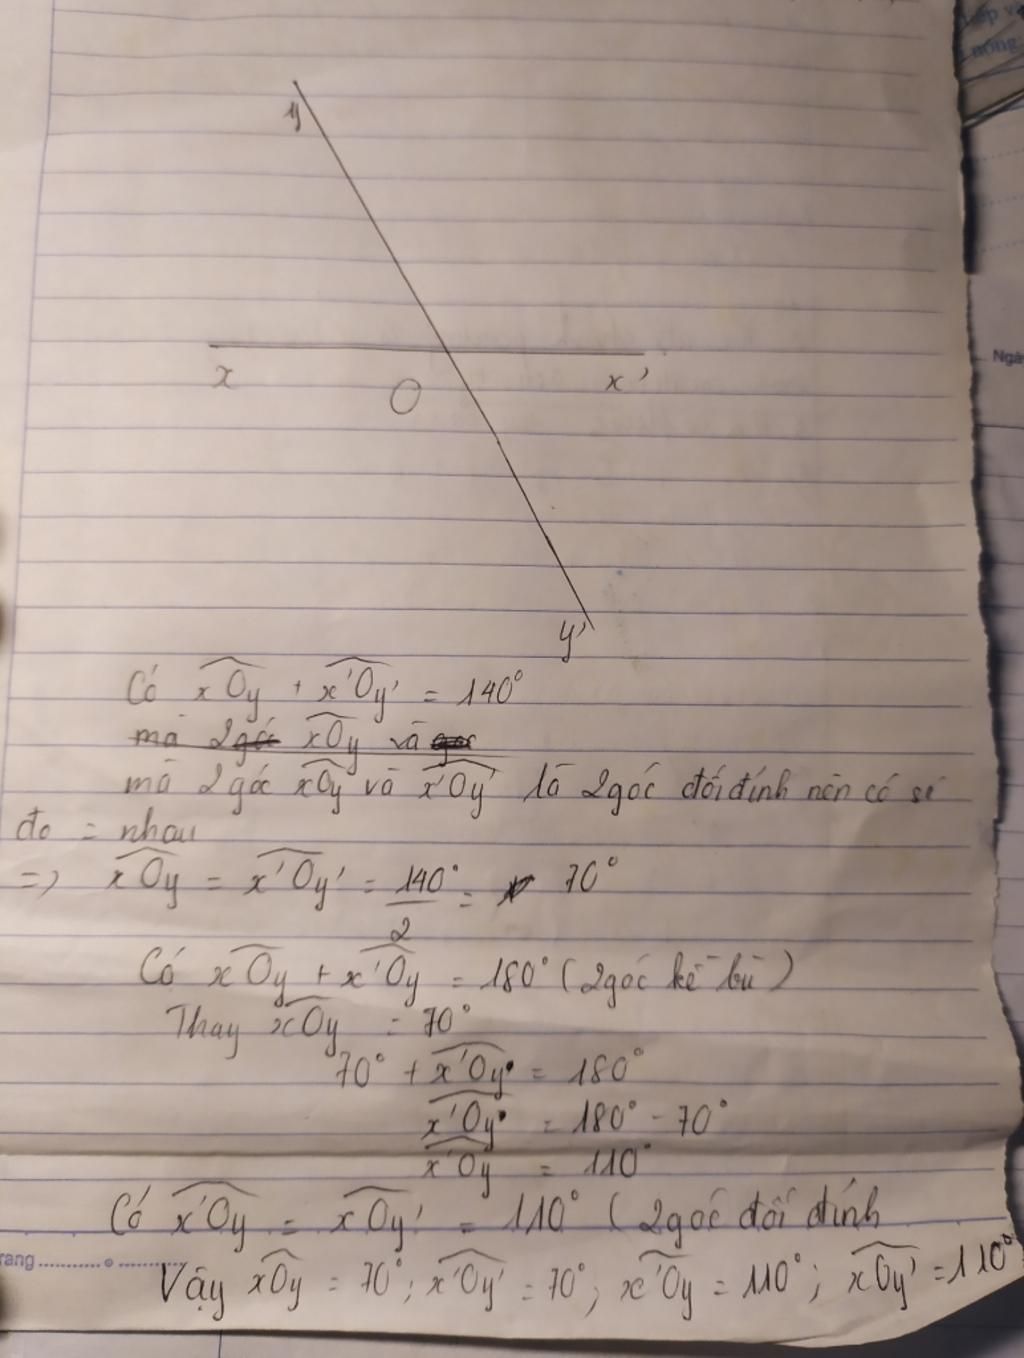 y
x
O
x'
y'
Có xOy + x'Oy' = 140°
mà 2 góc xOy và góc
mà 2 góc xOy và x'Oy' là 2 góc đối đỉnh nên có số
đo = nhau
=> xOy = x'Oy' = 140°/2 = 70°
Có xOy + x'Oy = 180° (2 góc kề bù)
Thay xOy = 70°
70° + x'Oy = 180°
x'Oy = 180° - 70°
x'Oy = 110°
Có x'Oy = xOy' = 110° (2 góc đối đỉnh
Vậy xOy = 70°; x'Oy' = 70°; x'Oy = 110°; xOy' = 110°
rang
Ngà
nóng